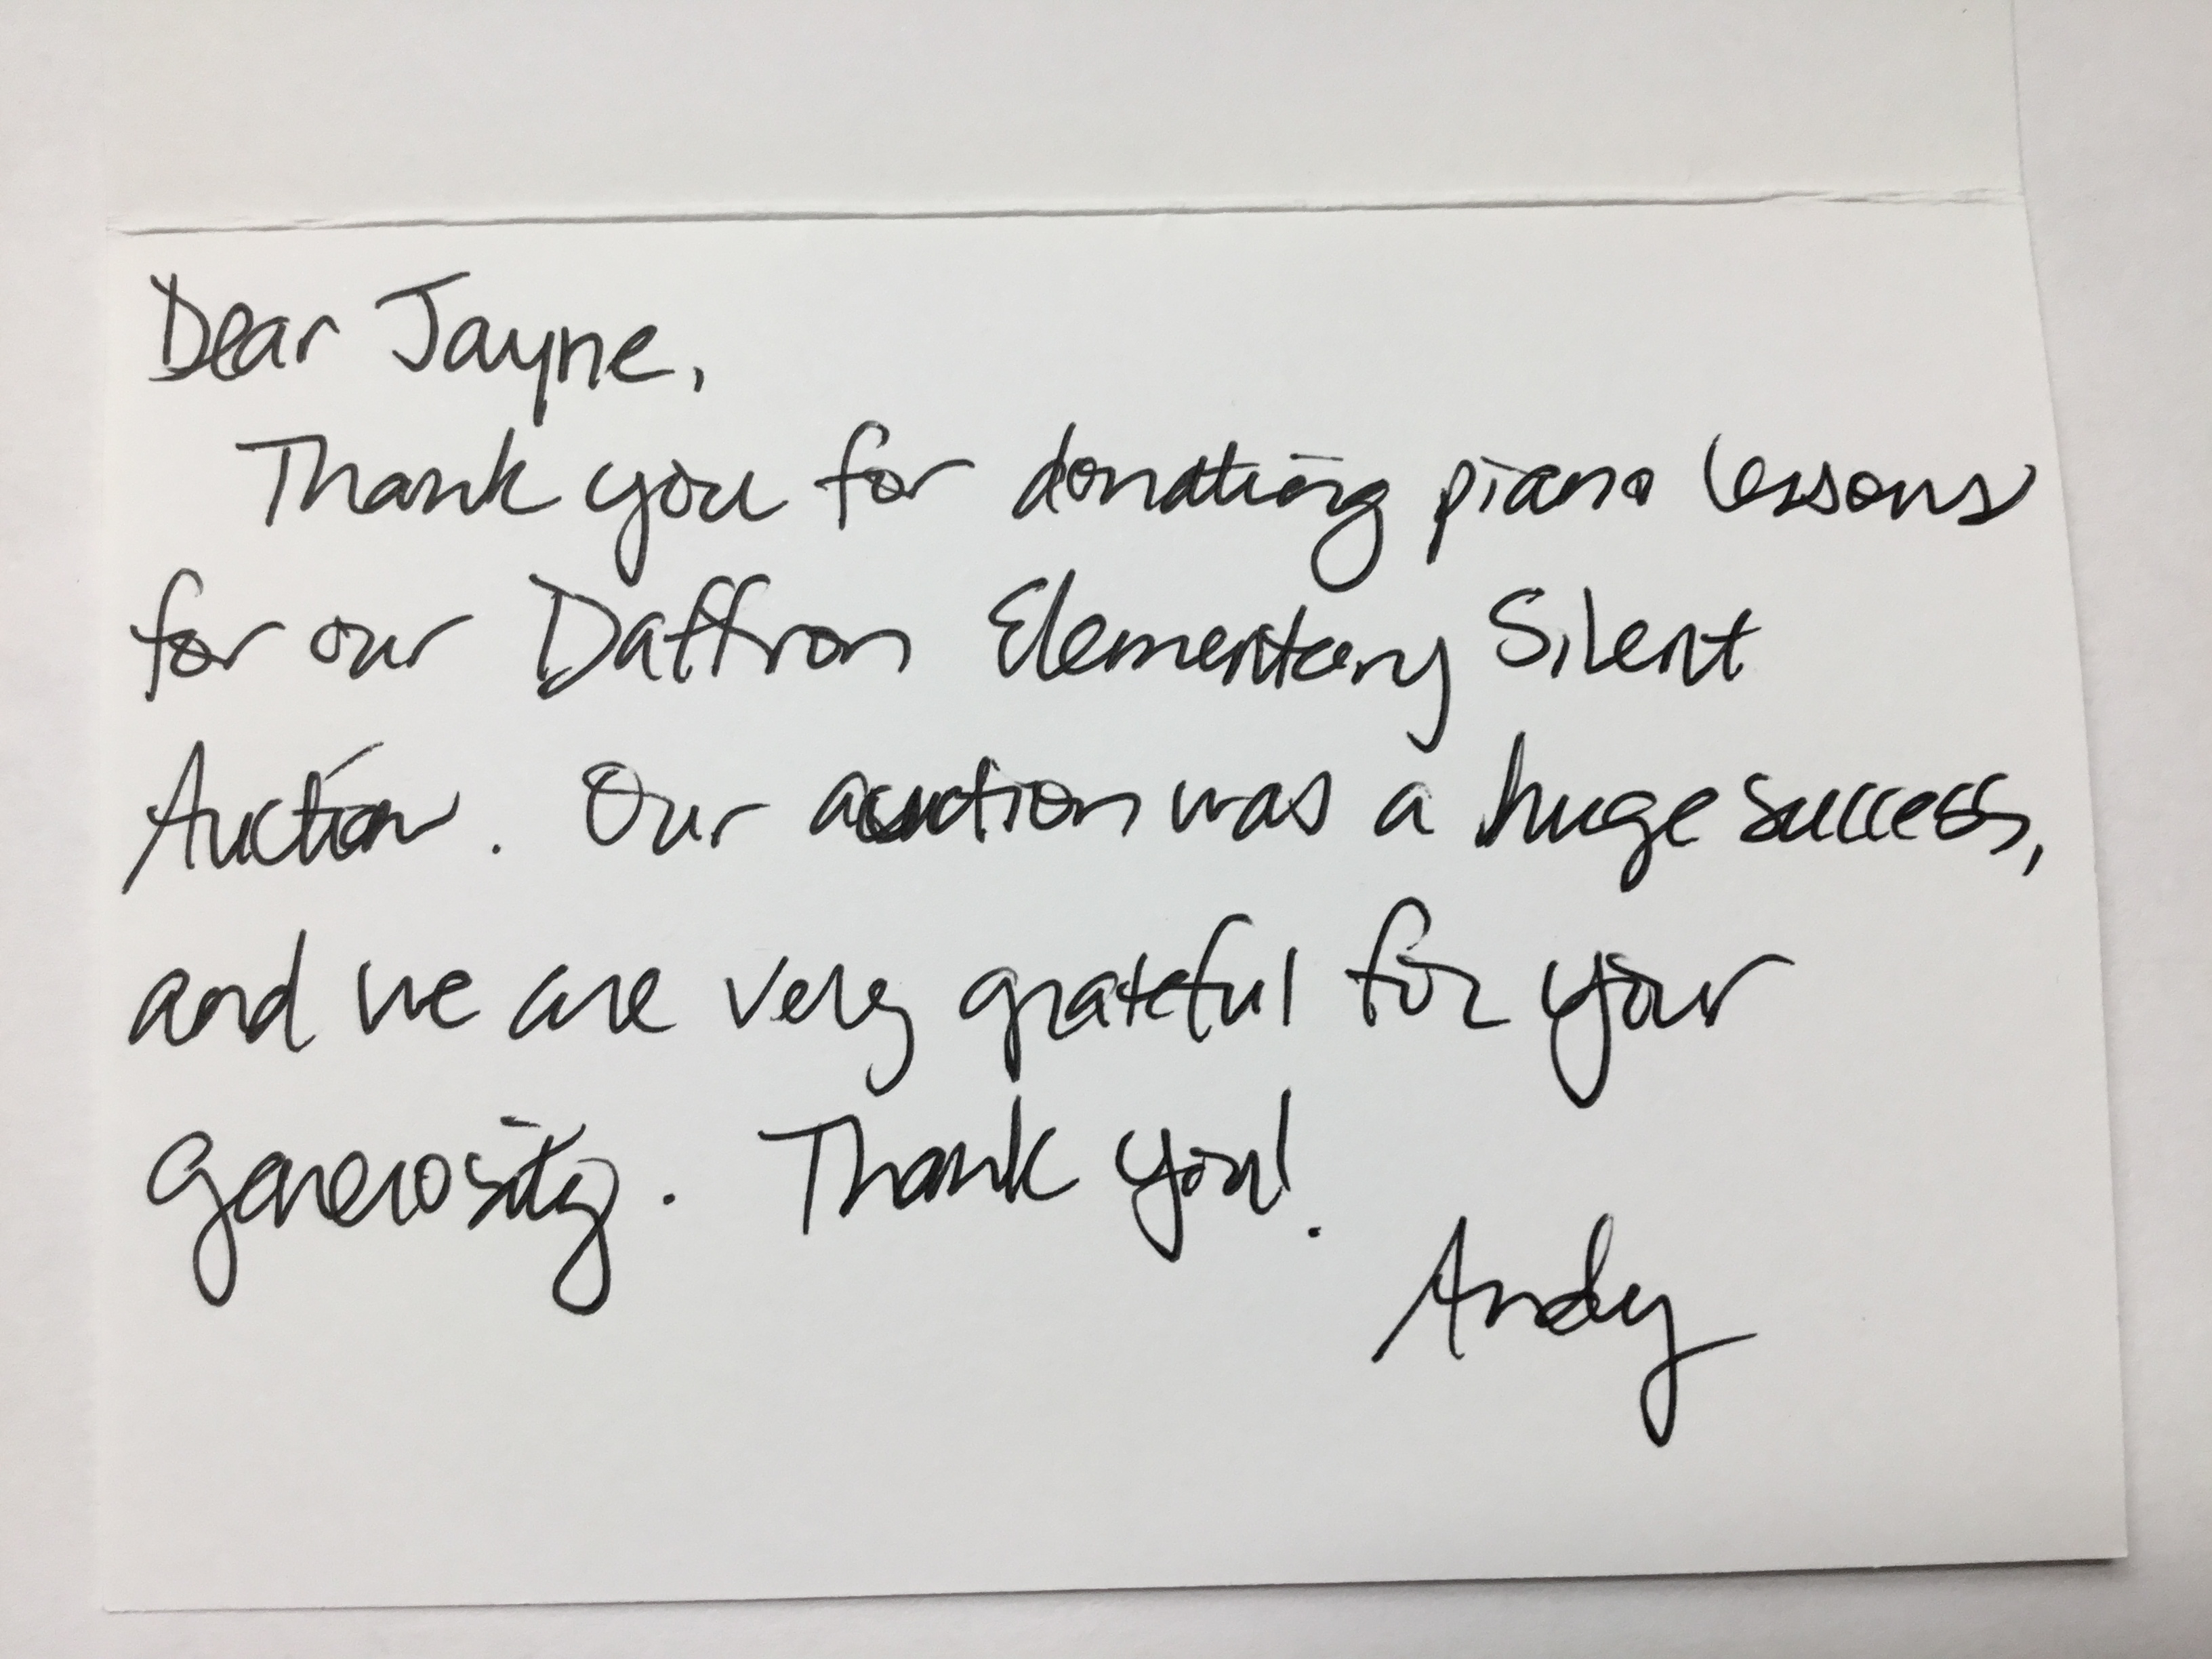 Dear Jayne,
Thank you for donating piano lessons
for our Daffron Elementary Silent
Auction. Our auction was a huge success,
and we are very grateful for your
generosity. Thank you!
Andy